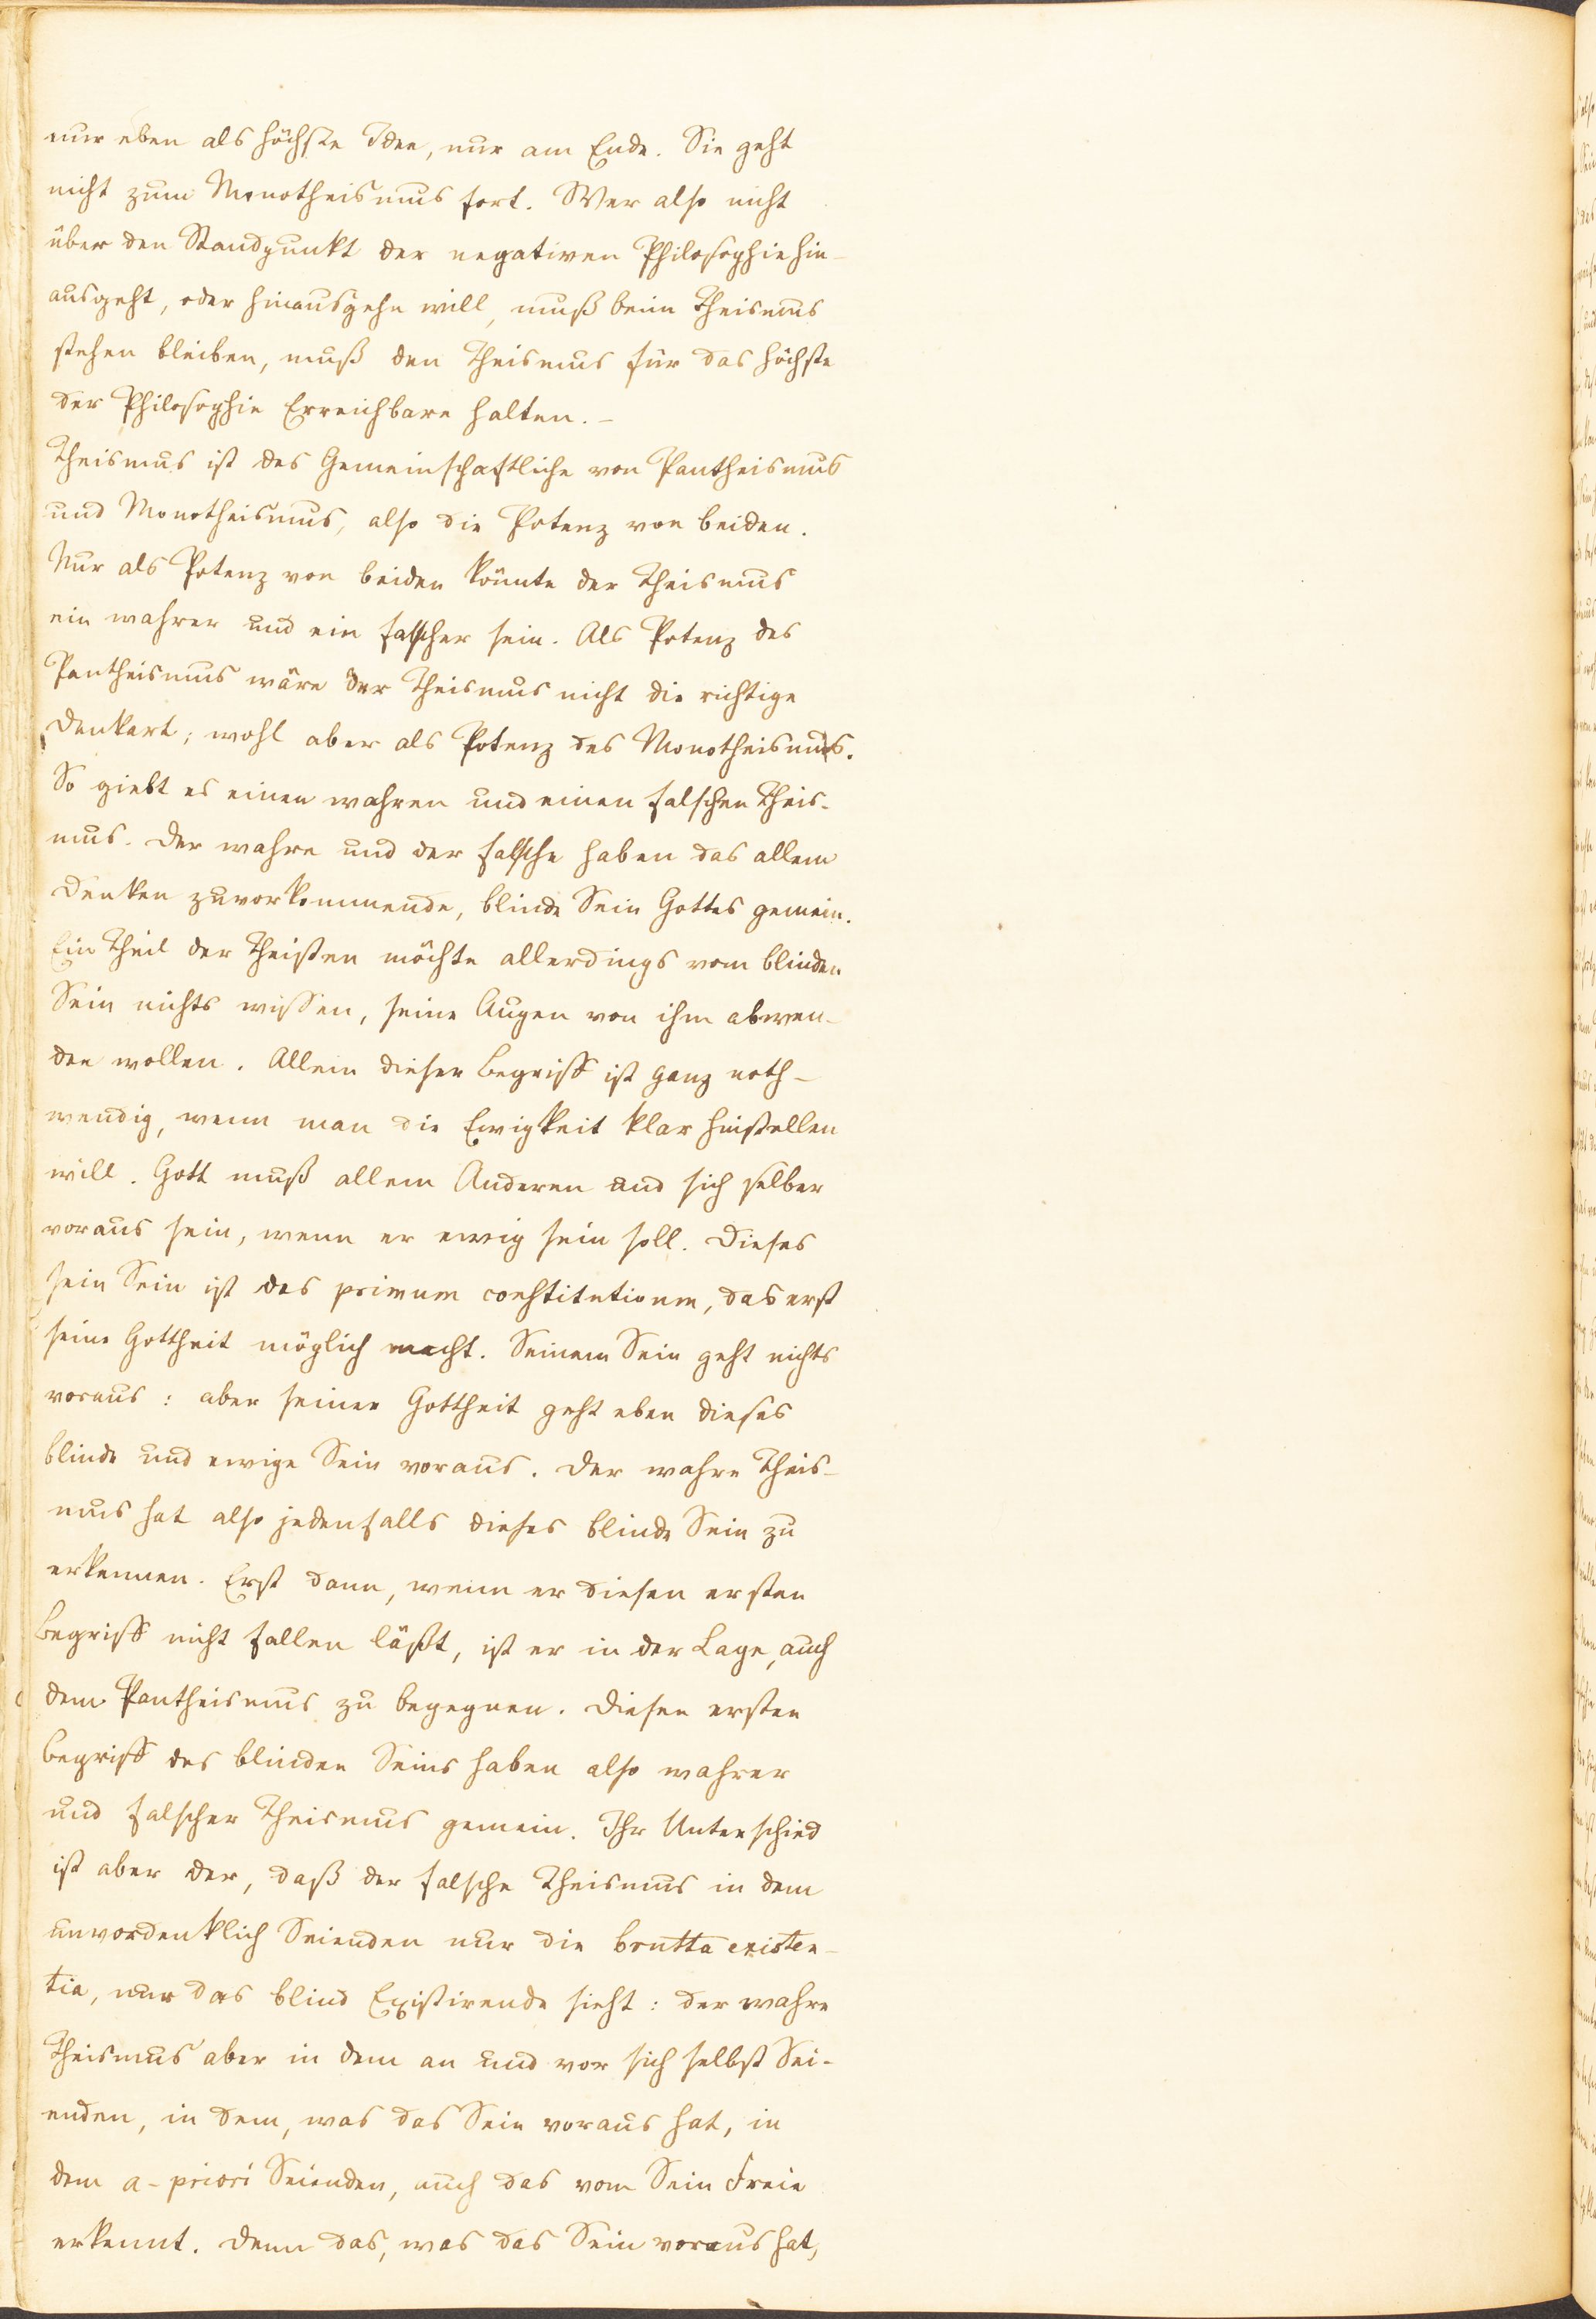 nur eben als höchste Idee, nur am Ende. Sie geht
nicht zum Monotheismus fort. Wer also nicht
über den Standpunkt der negativen Philosophie hin-
ausgeht, oder hinausgehn will, muß beim Theismus
stehen bleiben, muß den Theismus für das höchste
der Philosophie Erreichbare halten. –
Theismus ist das Gemeinschaftliche von Pantheismus
und Monotheismus, also die Potenz von beiden.
Nur als Potenz von beiden könnte der Theismus
ein wahrer und ein falscher sein. Als Potenz des
Pantheismus wäre der Theismus nicht die richtige
Denkart; wohl aber als Potenz des Monotheismus.
So giebt es einen wahren und einen falschen Theis-
mus. Der wahre und der falsche haben das allem
Denken zuvorkommende, blinde Sein Gottes gemein.
Ein Theil der Theisten möchte allerdings vom blinden
Sein nichts wissen, seine Augen von ihm abwen-
den wollen. Allein dieser Begriff ist ganz noth-
wendig, wenn man die Ewigkeit klar hinstellen
will. Gott muß allem Anderen und sich selber
voraus sein, wenn er ewig sein soll. Dieses
sein Sein ist das primum constitutivum, das erst
seine Gottheit möglich macht. Seinem Sein geht nichts
voraus: aber seiner Gottheit geht eben dieses
blinde und ewige Sein voraus. Der wahre Theis-
mus hat also jedenfalls dieses blinde Sein zu
erkennen. Erst dann, wenn er diesen ersten
Begriff nicht fallen läßt, ist er in der Lage, auch
dem Pantheismus zu begegnen. Diesen ersten
Begriff des blinden Seins haben also wahrer
und falscher Theismus gemein. Ihr Unterschied
ist aber der, daß der falsche Theismus in dem
unvordenklich Seienden nur die brutta existen-
tia, nur das blind Existirende sieht: der wahre
Theismus aber in dem an und vor sich selbst Sei-
enden, in dem, was das Sein voraus hat, in
dem a-priori Seienden, auch das vom Sein Freie
erkennt. Denn das, was das Sein voraus hat,